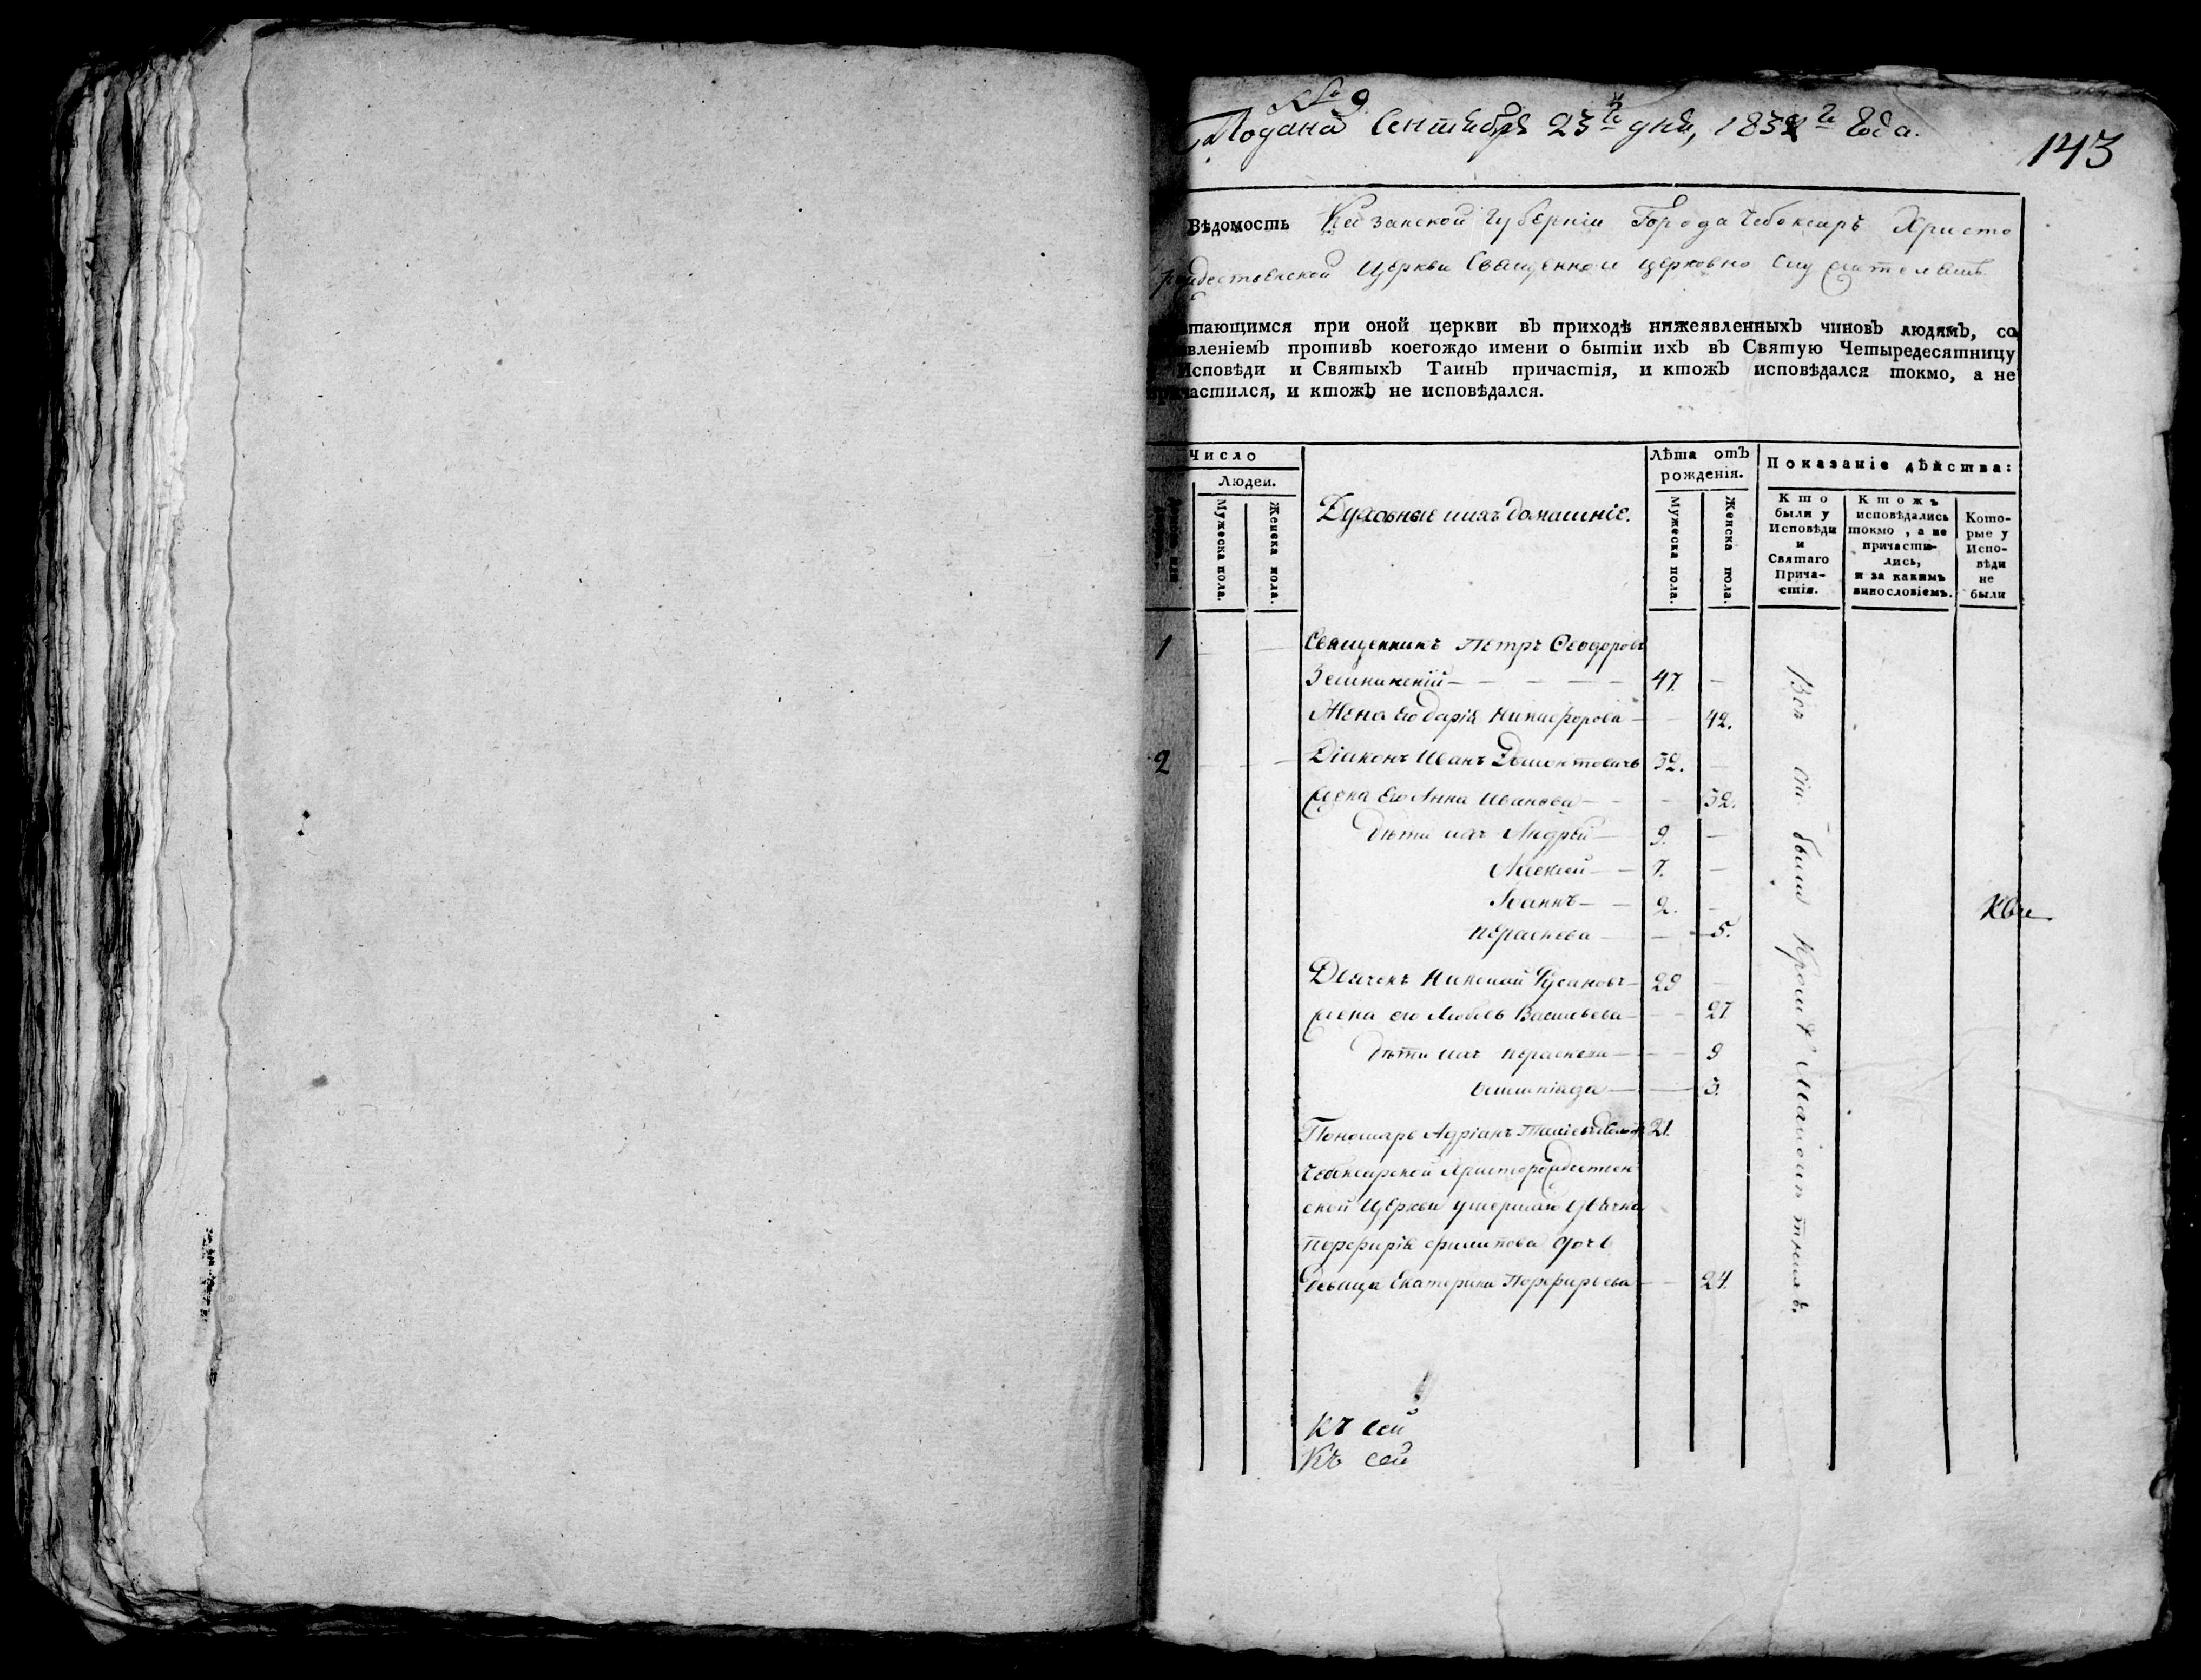 № 9
Подана Сентября 23го дня, 1832го Года.
143
Вѣдомость Казанской Губерніи Города Чебоксаръ Христо
рождественской Церкви Священно и церковно служителямъ
тающимся при оной церкви въ приходѣ нижеявленныхъ чиновъ людямъ, со
явленіемъ противъ коегождо имени о бытіи ихъ въ Святую Четыредесятницу
Исповѣди и Святыхъ Таинъ причастія, и ктожъ исповѣдался токмо, а не
причастился, и ктожъ не исповѣдался.
Число
Людеи.
Мужеска пола.
Женска пола.
Духовные и ихъ домашніе.
Лѣта отъ
рожденія.
Мужеска пола.
Женска пола.
Показаніе дѣйства:
Кто
были у
Исповѣди
и
Святаго
Прича-
стія.
Ктожъ
исповѣдались
токмо, а не
причасти-
лись,
и за какимъ
винословіемъ.
Кото-
рые у
Испо-
вѣди
не
были
1 Священникъ Петръ Ѳеодоровъ
Земницкій — 47. —
Жена Его Дарія Никифорова — 42.
2 Діаконъ Иванъ 32. —
Жена Его Анна Иванова — 32.
Дѣти ихъ Андрей — 9. —
Алексей — 7. —
Іоаннъ — 2. —
Параскева — 5.
Дьячекъ Николай Русановъ — 29 —
Жена его Любовь Васильева — 27
Дѣти ихъ Параскева — 9
Олимпіада — 3.
Пономарь Адріанъ 21.
Чебоксарской Христорождествен
ской Церкви умершаго Дьячка
Порфирія Филипова дочь
Девица Екатерина Порфирьева — 24.
Всѣ сіи были кромѣ малолѣтнихъ.
Къ сей
Къ сей